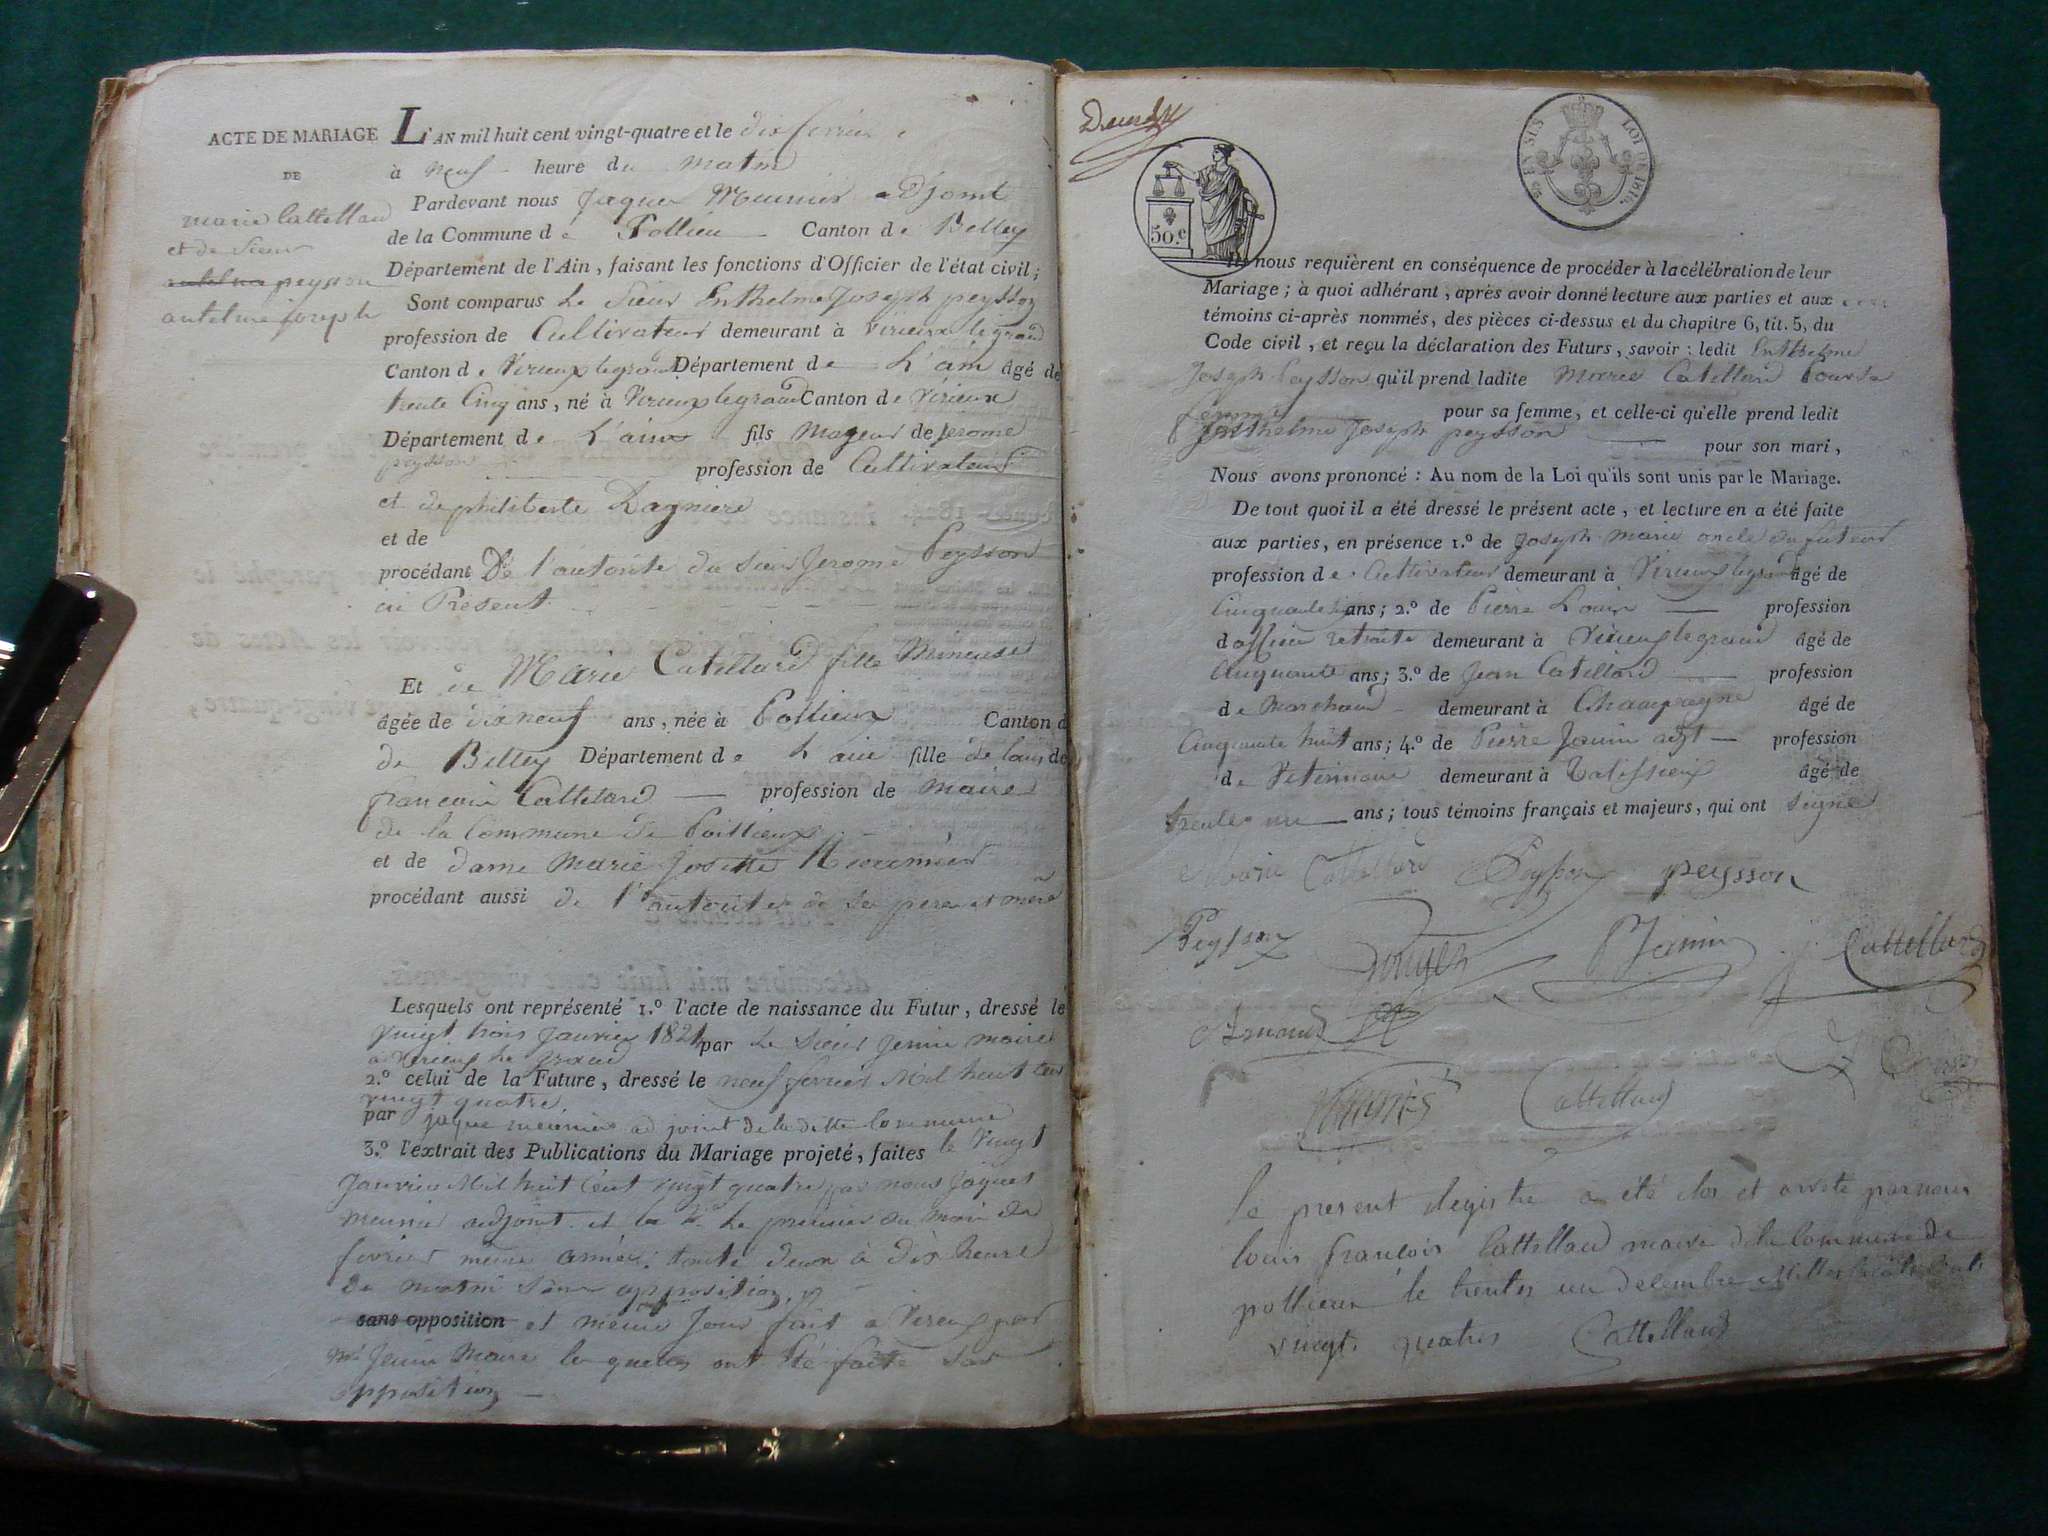 ACTE DE MARIAGE
DE
marie Cattelland
et de Sieur
peysson
antelme joseph
L'AN mil huit cent vingt-quatre et le dix fevrier
à neuf heure du matin
Pardevant nous Jaques Meunier adjoint
de la Commune de Pollieu Canton de Belley
Département de l'Ain, faisant les fonctions d'Officier de l'état civil;
Sont comparus Le Sieur Enthelme Joseph peysson
profession de Cultivateur demeurant à Virieux legrand
Canton de Virieux legrand Département de L'ain âgé de
trente Cinq ans, né à Virieux legrand Canton de Virieux
Département de L'ain fils Majeur de Jerome
peysson profession de Cultivateur
et de philiberte Dagniere
et de
procédant De l'autorité du sieur Jerome Peysson
ici Present
Et de Marie Catellard fille Mineuse
âgée de dix neuf ans, née à Pollieux Canton d
de Belley Département de L'ain fille de louis de
francois Cattelard profession de maire
de la Commune de Poillieux
et de dame Marie Josette Meunier
procédant aussi de l'autorité de ses pere et mere
Lesquels ont représenté 1.º l'acte de naissance du Futur, dressé le
vingt trois Janvier 1824 par Le Sieur Jenin maire
a Virieux le grand
2.º celui de la Future, dressé le neuf fevrier Mil huit cent
vingt quatre
par jaque meunier adjoint de la ditte Commune
3.º l'extrait des Publications du Mariage projeté, faites le Vingt
Janvier Mil huit Cent vingt quatre par nous Jaques
meunier adjoint et la 2e Le premier du mois de
fevrier meme année toute deux à dix heure
de matin sans opposition
sans opposition et meme Jour fait a Virieux par
Mr Jenin Maire les quelles ont été faite sans
opposition
50.c
EN SUS LOI DE 1816.
Ils nous requièrent en conséquence de procéder à la célébration de leur
Mariage; à quoi adhérant, après avoir donné lecture aux parties et aux
témoins ci-après nommés, des pièces ci-dessus et du chapitre 6, tit. 5, du
Code civil, et reçu la déclaration des Futurs, savoir: ledit Enthelme
Joseph Peysson qu'il prend ladite Marie Catellard pour sa
femme pour sa femme, et celle-ci qu'elle prend ledit
Enthelme Joseph peysson pour son mari,
Nous avons prononcé: Au nom de la Loi qu'ils sont unis par le Mariage.
De tout quoi il a été dressé le présent acte, et lecture en a été faite
aux parties, en présence 1.º de Joseph marie oncle du futeur
profession de Cultivateur demeurant à Virieux legrand âgé de
Cinquante ans; 2.º de Pierre profession
d officier retraite demeurant à Virieux legrand âgé de
Cinquante ans; 3.º de Jean Catillard profession
de Marchand demeurant à Champagne âgé de
Cinquante huit ans; 4.º de Pierre Janin profession
de Veterinaire demeurant à Talissieux âgé de
trente une ans; tous témoins français et majeurs, qui ont signé
Marie Catellard Peysson peysson
Peysson P Janin j. Cattelland
Meunier Cattelland
le present Registre a été clos et arreté par nous
louis françois Cattelland maire de la Commune de
pollieux le trentes un decembre Mille huit Cents
vingt quatres Cattelland